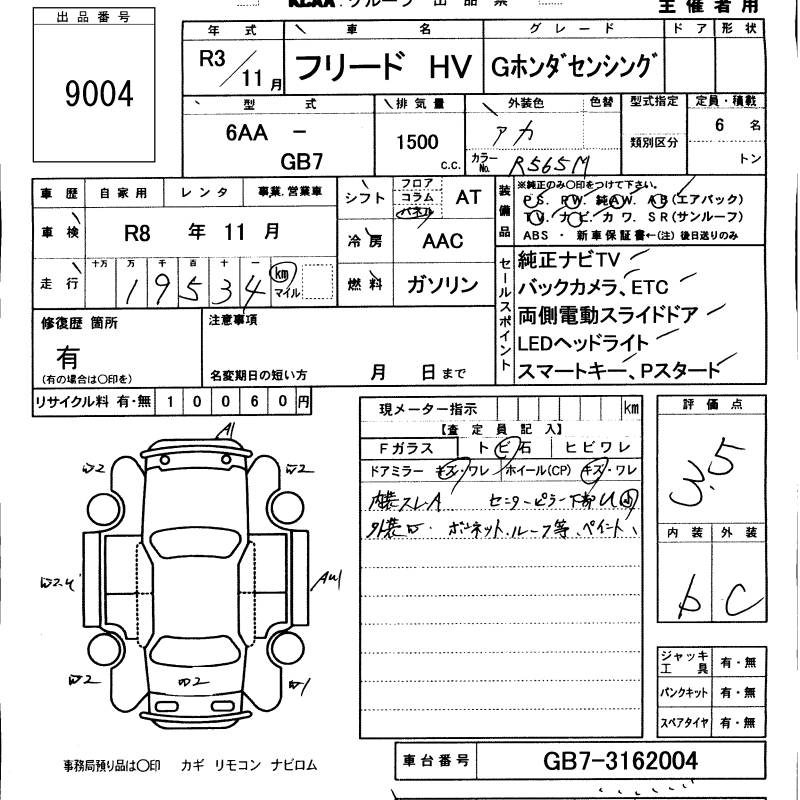 KCAA グループ 出品票
主催者用
出品番号
9004
年式 車名 グレード ドア 形状
R3/11月 フリード HV Gホンダセンシング
型式 排気量 外装色 色替 型式指定 定員・積載
6AA － GB7
1500 c.c.
アカ
カラーNo. R565M
類別区分
6 名
トン
車歴 自家用 レンタ 事業.営業車
車検 R8 年 11 月
走行 十万 万 千 百 十 一
19534 km マイル
シフト フロア コラム パネル AT
冷房 AAC
燃料 ガソリン
装備品 ※純正のみ〇印をつけて下さい。
PS. PW. 純AW. AB(エアバック)
TV. ナビ. カワ. SR(サンルーフ)
ABS ・ 新車保証書←(注) 後日送りのみ
セールスポイント
純正ナビTV
バックカメラ、ETC
両側電動スライドドア
LEDヘッドライト
スマートキー、Pスタート
修復歴 箇所
有
(有の場合は〇印を)
注意事項
名変期日の短い方 月 日まで
リサイクル料 有・無 10060円
現メーター指示 km
【査定員記入】
Fガラス トビ石 ヒビワレ
ドアミラー キズ・ワレ ホイール(CP) キズ・ワレ
内装スレA センターピラー下部U
外装 ボンネット.ルーフ等、ペイント、
評価点
3.5
内装 外装
b C
A1
W2
W2
AW1
W2
W2
W1
ジャッキ工具 有・無
パンクキット 有・無
スペアタイヤ 有・無
事務局預り品は〇印 カギ リモコン ナビロム
車台番号 GB7-3162004